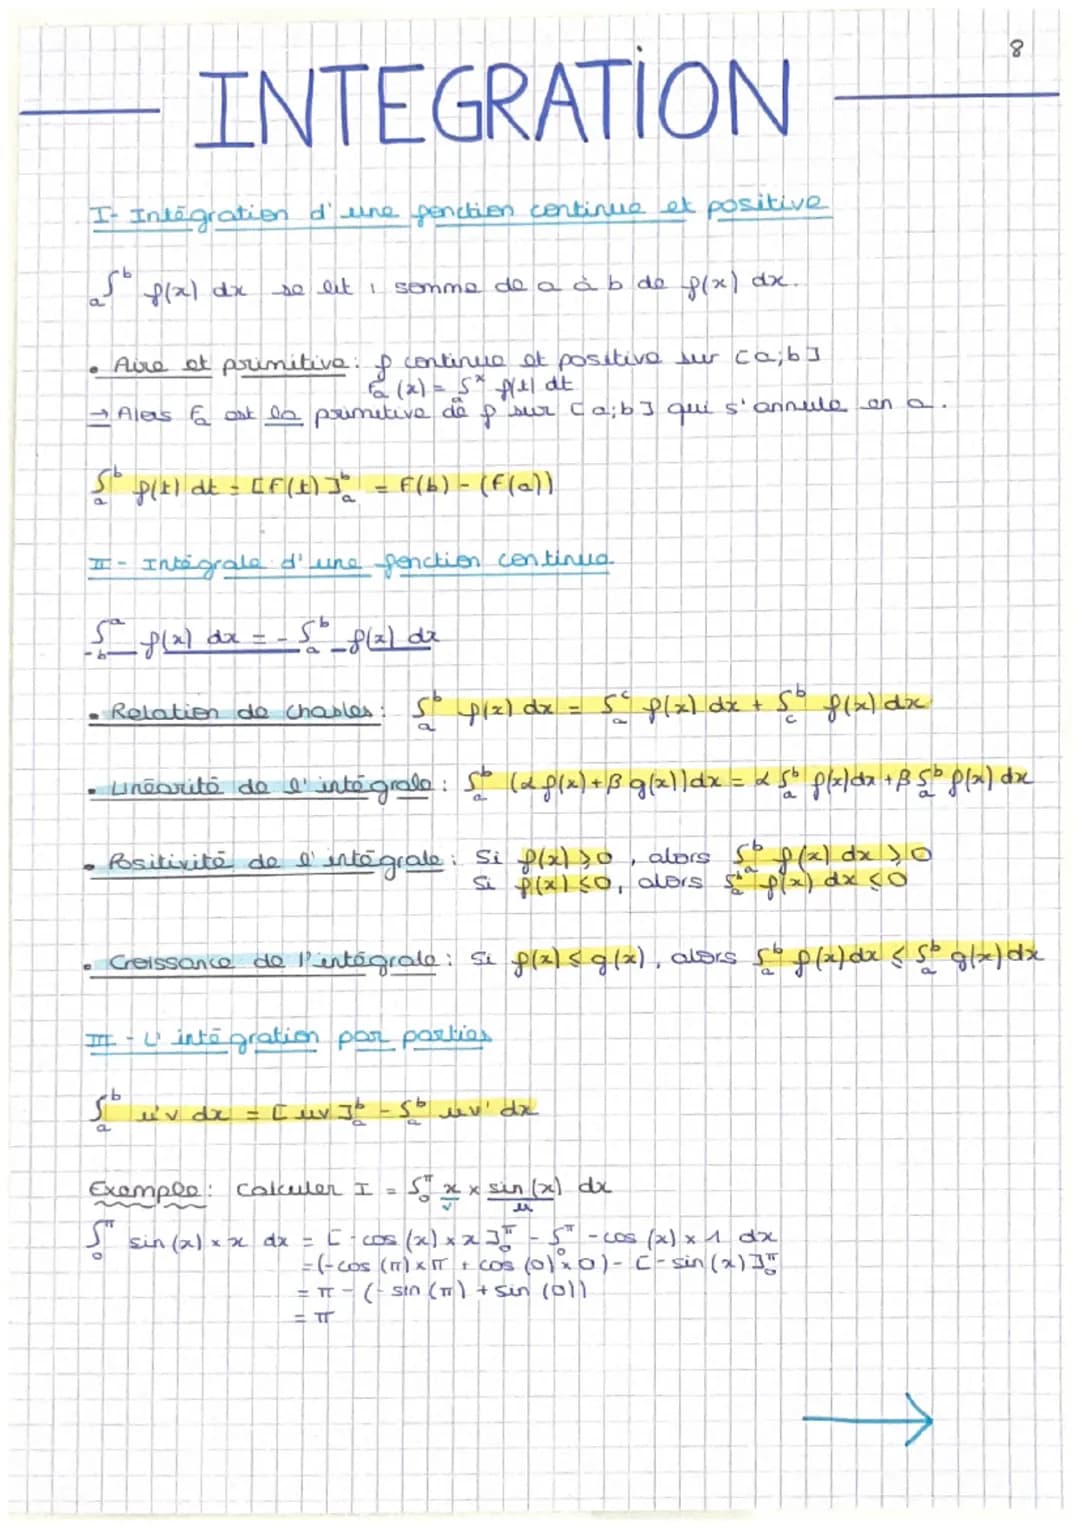 8
INTEGRATION
I- Intégration d'une fonction continue et positive
∫_a^b f(x) dx se lit : somme de a à b de f(x) dx.
• Aire et primitive : f continue et positive sur [a;b]
F_a (x) = ∫_a^x f(t) dt
→ Alors F_a est la primitive de f sur [a;b] qui s'annule en a.
∫_a^b f(t) dt = [F(t)]_a^b = F(b) - (F(a))
II - Intégrale d'une fonction continue
∫_b^a f(x) dx = - ∫_a^b f(x) dx
• Relation de Chasles : ∫_a^b f(x) dx = ∫_a^c f(x) dx + ∫_c^b f(x) dx
• Linéarité de l'intégrale : ∫_a^b (α f(x) + β g(x)) dx = α ∫_a^b f(x) dx + β ∫_a^b f(x) dx
• Positivité de l'intégrale : Si f(x) ⩾ 0, alors ∫_a^b f(x) dx ⩾ 0
Si f(x) ⩽ 0, alors ∫_a^b f(x) dx ⩽ 0
• Croissance de l'intégrale : Si f(x) ⩽ g(x), alors ∫_a^b f(x) dx ⩽ ∫_a^b g(x) dx
III - L'intégration par parties
∫_a^b u'v dx = [uv]_a^b - ∫_a^b uv' dx
Exemple : Calculer I = ∫_0^π x × sin(x) dx
v u
∫_0^π sin(x) × x dx = [-cos(x) × x]_0^π - ∫_0^π -cos(x) × 1 dx
= (-cos(π) × π + cos(0) × 0) - [-sin(x)]_0^π
= π - (-sin(π) + sin(0))
= π
→